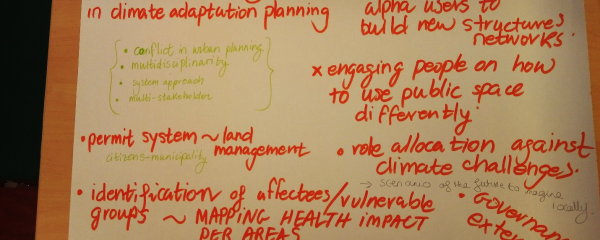 in climate adaptation planning
• conflict in urban planning
• multidisciplinarity
• system approach
• multi-stakeholder
• permit system ~ land
management
citizens-municipality
• identification of affectees/vulnerable
groups ~ MAPPING HEALTH IMPACT
PER AREAS
alpha users to
build new structures
networks.
x engaging people on how
to use public space
differently.
• role allocation against
climate challenges.
→ scenarios of the future to imagine
locally.
• Governan
exter